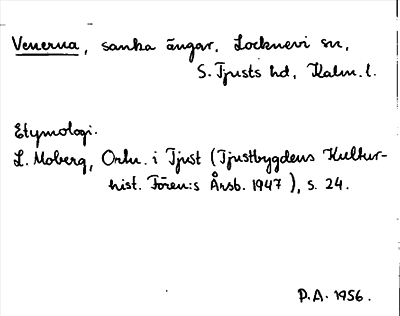 Venerna, sanka ängar, Locknevi sn,
S. Tjusts hd, Kalm. l.
Etymologi.
L. Moberg, Ortn. i Tjust (Tjustbygdens Kultur-
hist. Fören:s Årsb. 1947), s. 24.
P.A. 1956.